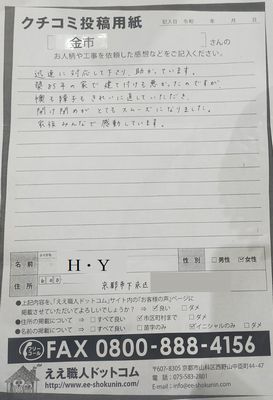 クチコミ投稿用紙
記入日 令和 年 月 日
金市 さんの
お人柄や工事を依頼した感想などをご記入ください。
迅速に対応して下さり、助かっています。
築85年の家で建て付けも悪かったのですが
襖も障子もきれいに直していただき、
開け閉めがとてもスムーズになりました。
家族みんなで感動しています。
名前 H・Y 性別 □男性 ☑女性
住所 京都市下京区
●上記内容を、「ええ職人ドットコム」サイト内の「お客様の声」ページに
掲載させていただいてよろしいでしょうか? ☑良い □ダメ
●住所の掲載について ⇒ □すべて良い ☑市区町村まで □ダメ
●名前の掲載について ⇒ □すべて良い □苗字のみ ☑イニシャルのみ □ダメ
フリーコール FAX 0800-888-4156
ええ職人ドットコム
http://www.ee-shokunin.com/
〒607-8305 京都市山科区西野山中臣町44-47
TEL：075-583-2801
E-mail：info@ee-shokunin.com